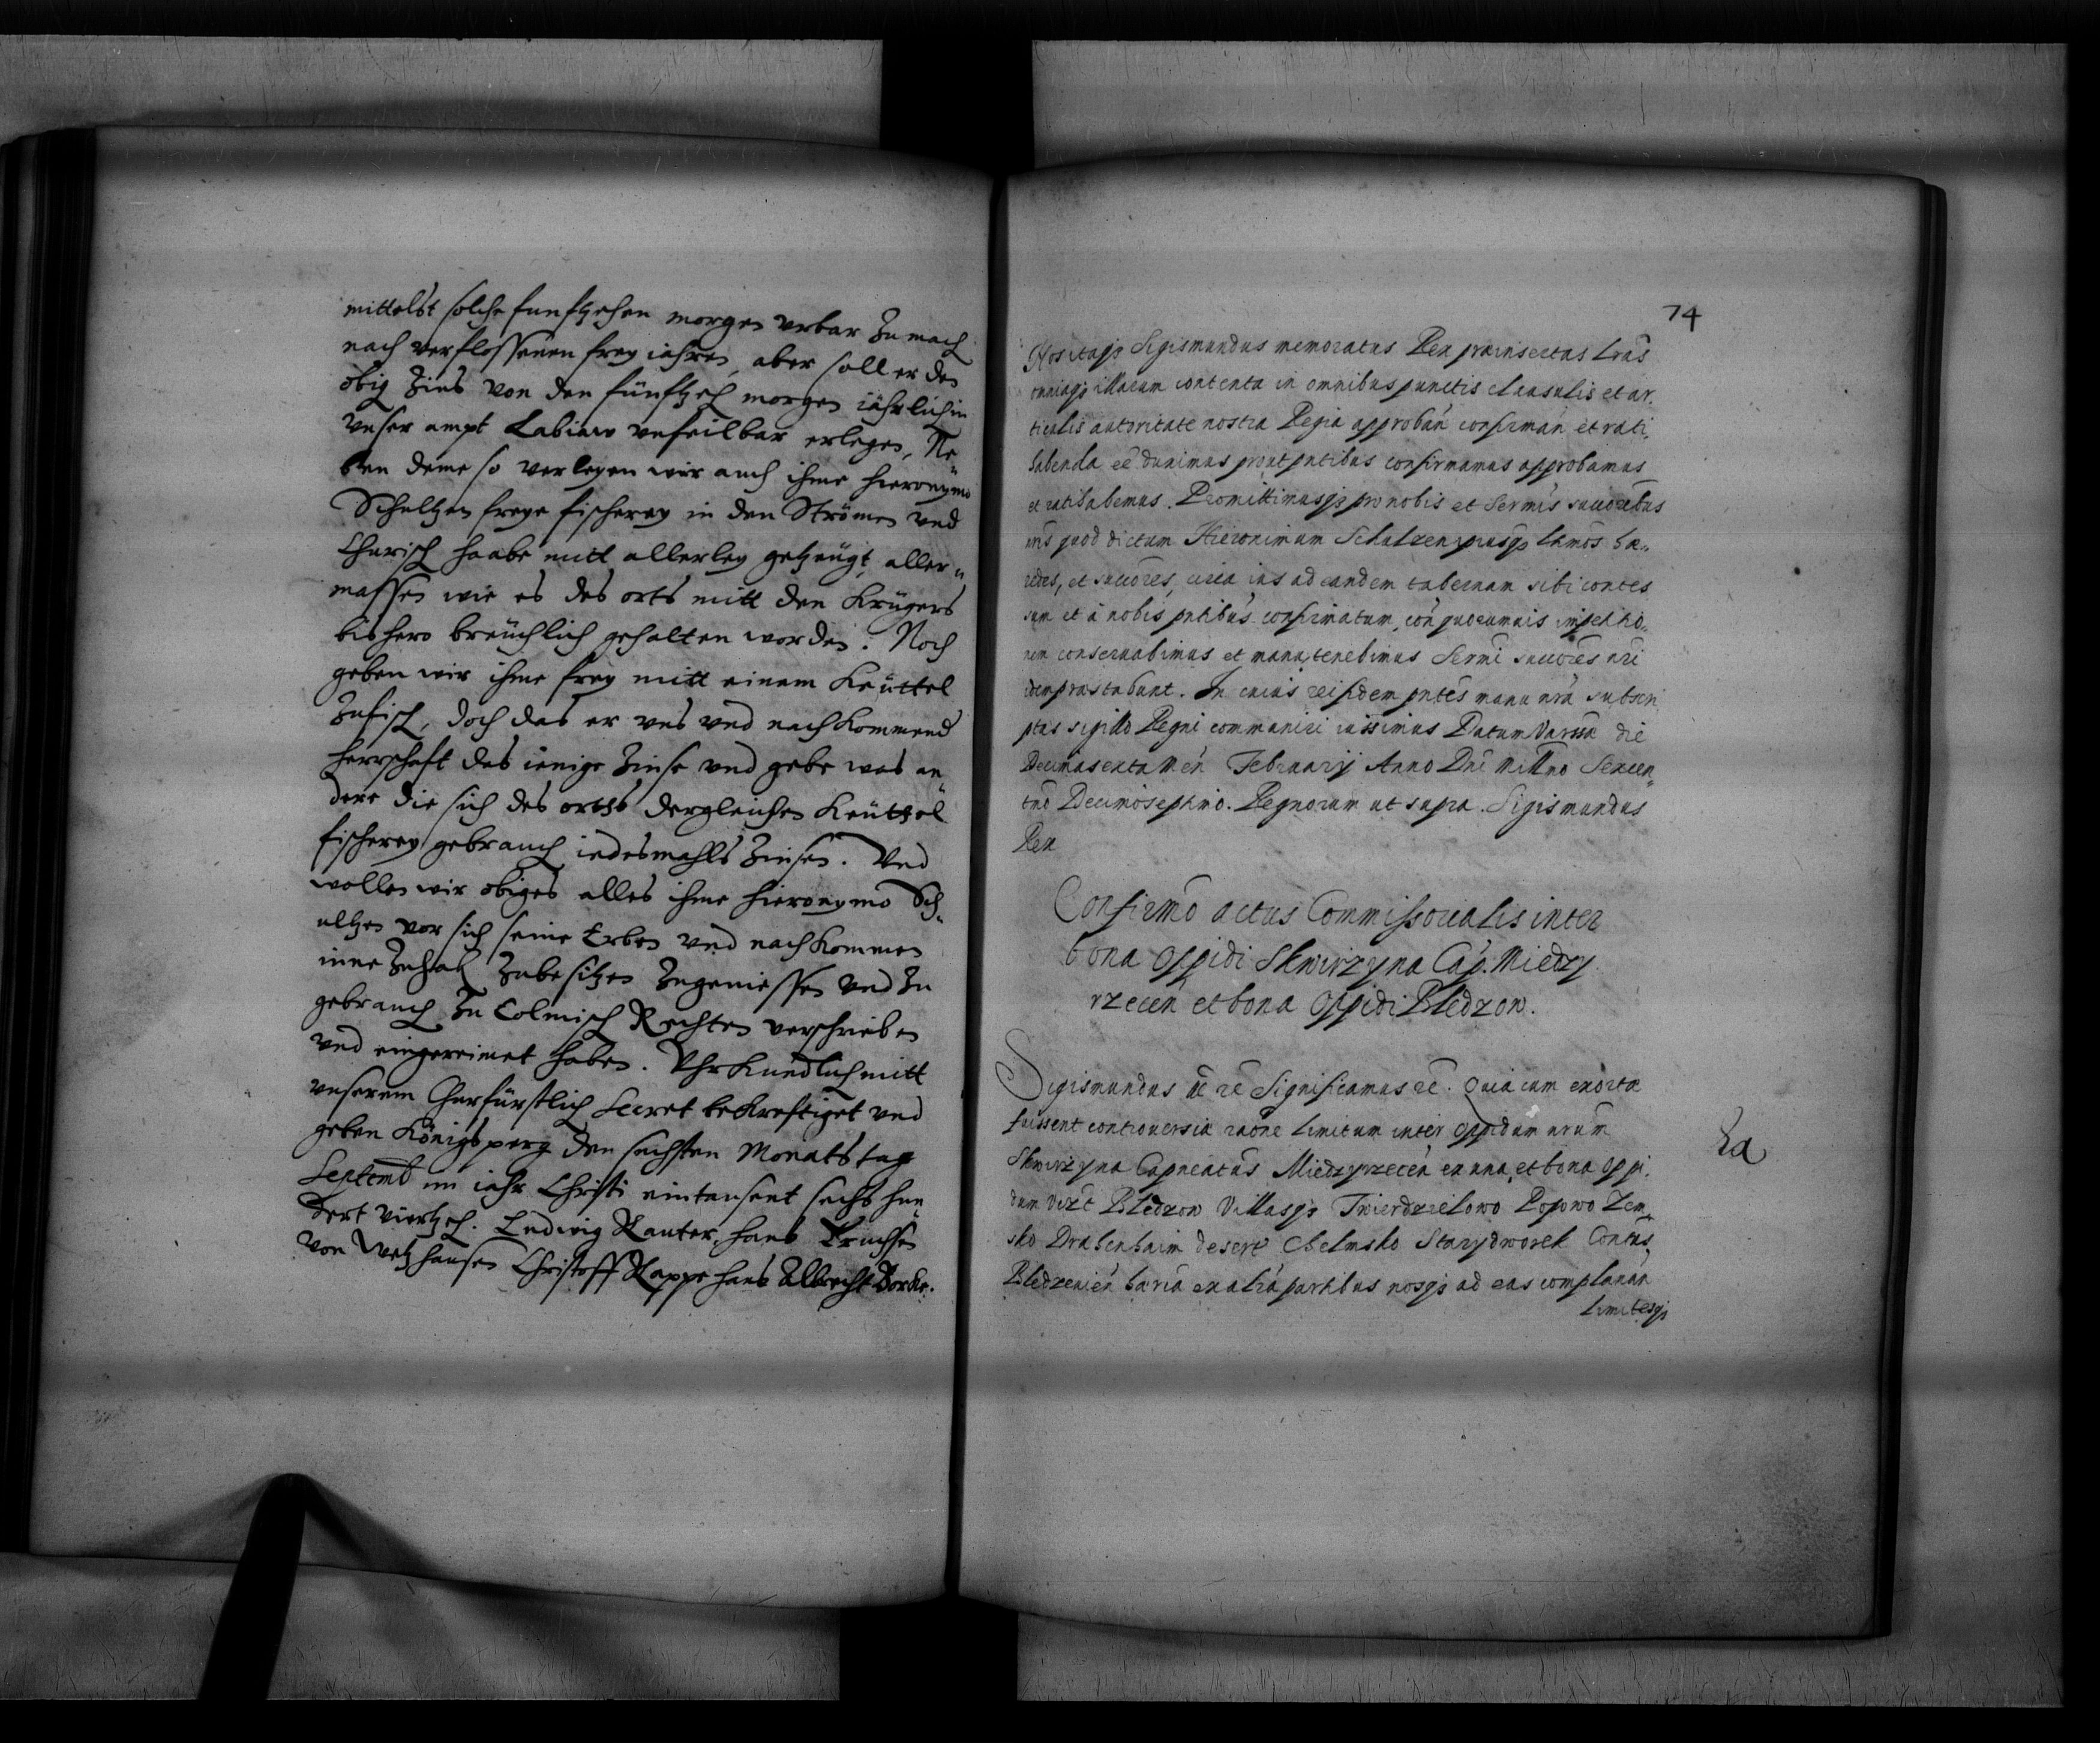 mittelst solche funftzehen morgen vrbar zu mach
nach verflossenen frey iahren, aber soll er den
obig Zins von den fünftzeh morgen iährlich in
vnser ampt Labiaw vnfeilbar erlegen, Ne„
ben deme so verlegen wir auch ihme Hieronymo
Schultzen freye fischerey in den Strömen vnd
Churisch Haabe mitt allerley getzeugt, aller„
massen wie es des orts mitt den Krügers
bishero breüchlich gehalten worden: Noch
geben wir ihme frey mitt einem Keüttel
Zufisch, doch das er vns vnd nachkommend
herrschaft das ienige Zinse vnd gebe was an„
dere die sich des orths dergleichen Keüttel
fischerey gebrauch iedesmahls Zinsen. Vnd
wollen wir obiges alles ihme Hieronymo Sch„
ultzen vor sich seine Erben vnd nachkommen
inne Zuhab Zubesitzen Zugeniessen vnd Zu
gebrauch Zu Colmisch Rechten verschrieben
vnd eingereimet haben. Vhrkundlich mitt
vnserem Churfürstlich Secret bekreftiget vnd
geben Königsperg den sechsten Monatstag
Septemb im iahr Christi eintausent sechs hun„
dert viertzeh. Ludwig Rauter, Hans Truchses
von Wetzhausen Christoff Rappe Hans Albrecht Borcke.
74
Nos itaqȝ Sigismundus memoratus Rex præinsertas lras
omniaqȝ illarum contenta in omnibus punctis clausulis et ar„
ticulis autoritate nostra Regia approban confirman et rati„
habenda eē duximus prout pntibus confirmamus approbamus
et ratihabemus. Promittimusqȝ pro nobis et Sermis succoribus
nris quod dictum Hieronimum Schulzen ipiusqȝ ltmos hæ„
redes, et succores, circa ius ad eandem tabernam sibi conces
sum et a nobis pntibus confirmatum, con quorumuis impetitio„
nem conseruabimus et manutenebimus Sermi succores nri
idem præstabunt. In cuius rei fidem pntes manu nra subscri
ptas sigillo Regni communiri iussimus Datum Varssæ die
Decimasexta Men Februarij Anno Dni Millmo Sexcen„
tmo Decimoseptimo. Regnorum ut supra. Sigismundus
Rex
Confirmo actus Commissorialis inter
bona oppidi Skwirzyna Cap. Miedzy
rzecen et bona oppidi Bledzow.
Sigismundus etc re Significamus ec. Quia cum exortæ
fuissent controuersiæ raone limitum inter oppidum nrum
Skwirzyna Capneatus Miedzyrzecen ex una, et bona oppi„
dum vizt Bledzow Villasqȝ Twierdzielowo Popowo Zem„
sko Drabenhaim desert Chelmsko Starydworek Contus
Bledzeuien hæria ex altra partibus nosqȝ ad eas complanan
limitesqȝ